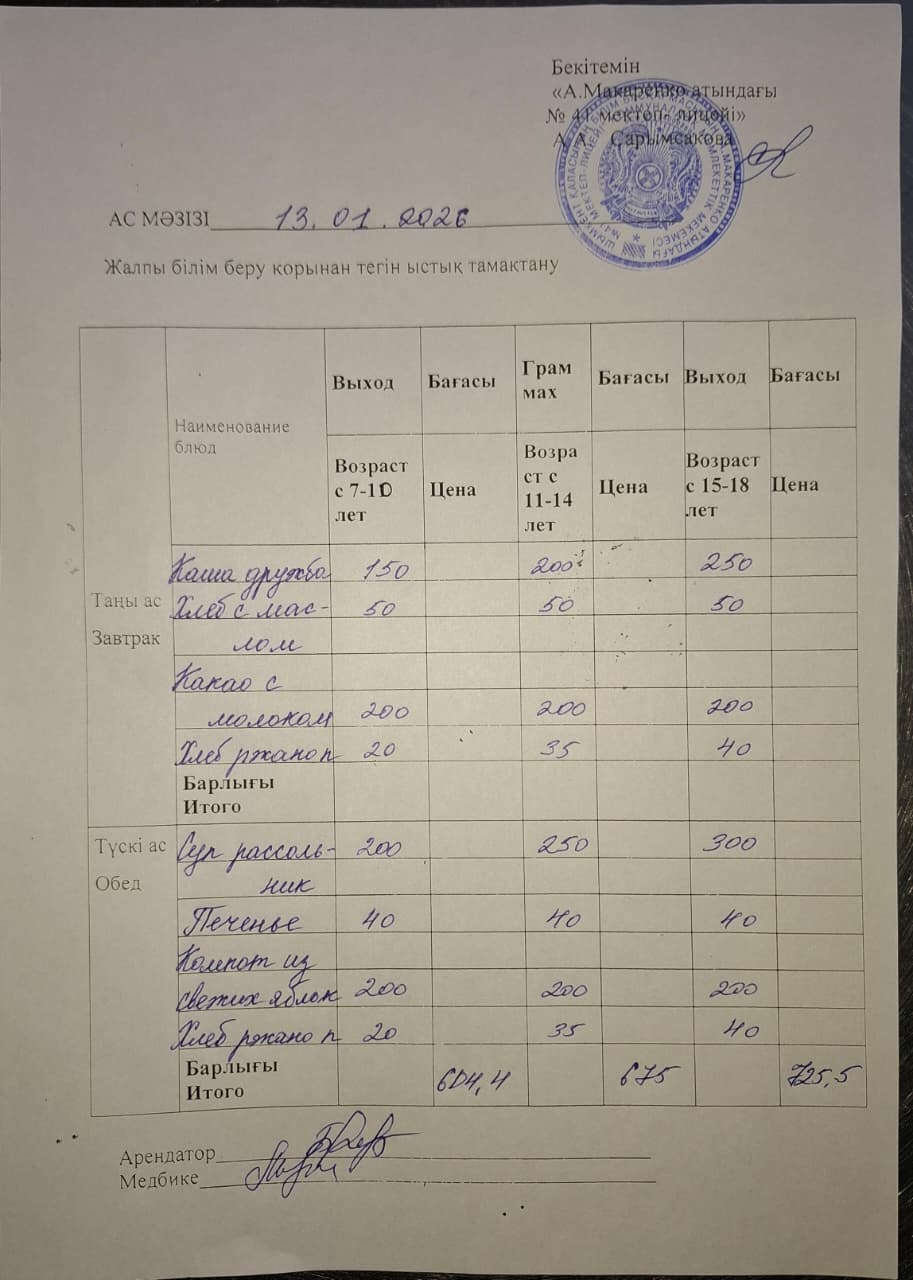 Бекітемін
«А.Макаренко атындағы
№ 41 мектеп- лицейі»
А.А. Сарымсакова
АС МӘЗІЗІ 13.01.2026
Жалпы білім беру корынан тегін ыстық тамактану
Наименование блюд
Выход Бағасы Грам мах Бағасы Выход Бағасы
Возраст с 7-10 лет Цена Возра ст с 11-14 лет Цена Возраст с 15-18 лет Цена
Таңы ас
Завтрак
Каша дружба 150 200 250
Хлеб с мас- 50 50 50
лом
Какао с
молоком 200 200 200
Хлеб ржано п 20 35 40
Барлығы
Итого
Түскі ас
Обед
Суп рассоль- 200 250 300
ник
Печенье 40 40 40
Компот из
свежих яблок 200 200 200
Хлеб ржано п 20 35 40
Барлығы
Итого 604,4 675 725,5
Арендатор
Медбике